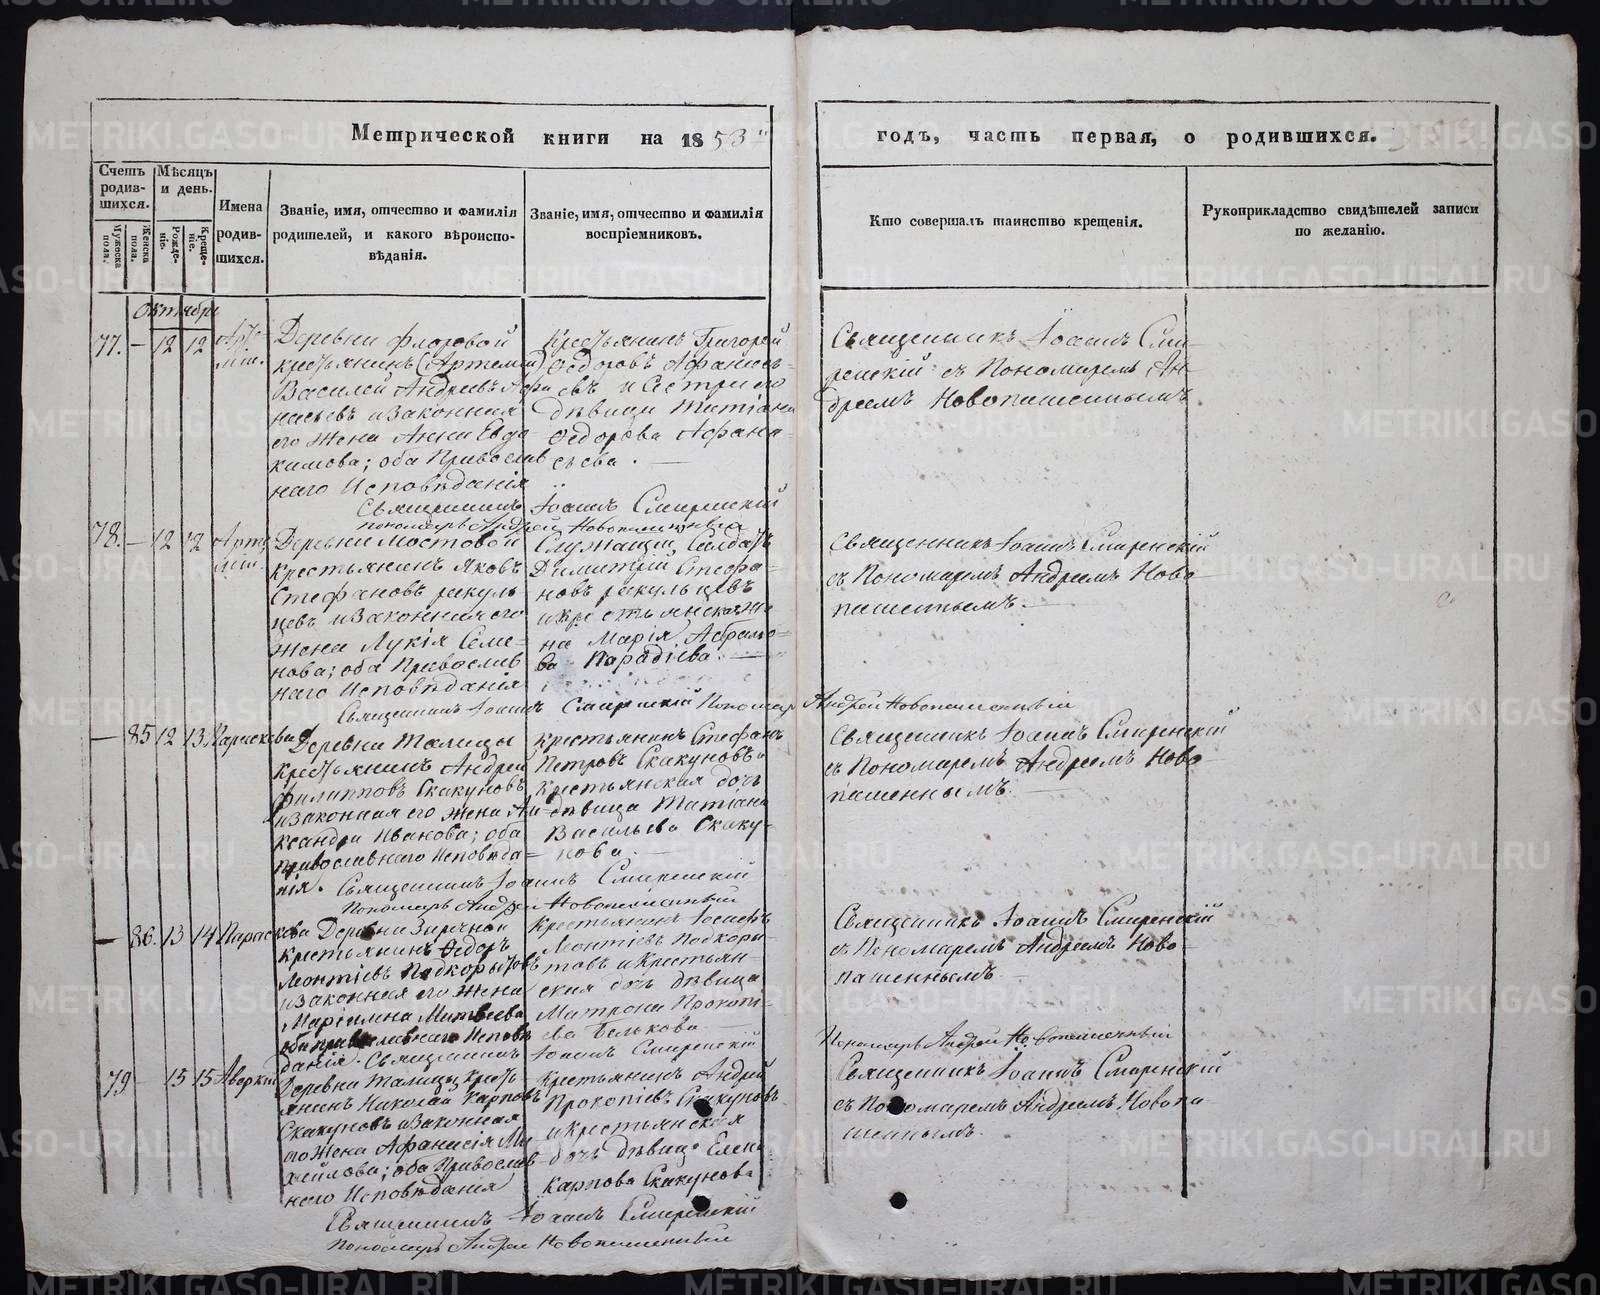 Метрической книги на 1853"
годъ, часть первая, о родившихся.
Счетъ родив-шихся.
Мужеска пола.
Женска пола.
Мѣсяцъ и день.
Рожде-ніе.
Креще-ніе.
Имена родив-шихся.
Званіе, имя, отчество и фамилія
родителей, и какого вѣроиспо-
вѣданія.
Званіе, имя, отчество и фамилія
воспріемниковъ.
Кто совершалъ таинство крещенія.
Рукоприкладство свидѣтелей записи
по желанію.
Октября
77. — 12 12
Деревни Фроловой
крестьянинъ (Артемій)
Василей Андреевъ Афа
насьевъ и Законная
его Жена Анна Евдо-
кимова; оба Православ
наго Исповѣданія
Крестьянинъ Григорей
Ѳедоровъ Афанась-
евъ и Сестра его
дѣвица Татіана
Ѳедорова Афана-
сьева. —
Священникъ Іоаннъ Сми-
ренскій съ Пономаремъ Ан-
дреемъ Новопашеннымъ.
Священникъ Іоаннъ Смиренскій
Пономарь Андрей Новопашенный
78. — 12 12
Деревни Мостовой
Крестьянинъ Яковъ
Стефановъ рякуль
цевъ и Законная его
Жена Лукія Семе-
нова; оба Православ
наго Исповѣданія
Служащій Салдатъ
Димитрій Стефа-
новъ рякульцевъ
и крестьянская же-
на Марія Абрамо-
ва Парадіева. —
Священникъ Іоаннъ Смиренскій
съ Пономаремъ Андреемъ Ново-
пашеннымъ. —
Священникъ Іоаннъ Смиренскій Пономарь Андрей Новопашенный
— 85 12 13 Параскева
Деревни Талицы
Крестьянинъ Андрей
Филипповъ Скакуновъ
и Законная его Жена Але-
ксандра Иванова; оба
православнаго Исповѣда-
нія.
Крестьянинъ Стефанъ
Петровъ Скакуновъ и
Крестьянская дочь
дѣвица Татіана
Васильева Скаку-
нова. —
Священникъ Іоаннъ Смиренскій
съ Пономаремъ Андреемъ Ново-
пашеннымъ. —
Священникъ Іоаннъ Смиренскій
Пономарь Андрей Новопашенный
— 86. 13 14 Параскева
Деревни Заречной
Крестьянинъ Ѳедоръ
Леонтіевъ Подкорытовъ
и Законная его Жена
Маріамна Матвѣева
оба православнаго Исповѣ
данія.
Крестьянинъ Іосифъ
Леонтіевъ Подкоры-
товъ и Крестьян-
ская дочь дѣвица
Матрона Прокопі-
ева Белькова —
Священникъ Іоаннъ Смиренскій
съ Пономаремъ Андреемъ Ново-
пашеннымъ —
Священникъ Іоаннъ Смиренскій
Пономарь Андрей Новопашенный
79 — 15 15 Аверкій
Деревни Талицы Кресть-
янинъ Николай Карповъ
Скакуновъ и Законная
его Жена Афанасія Ми-
хайлова; оба Православ
наго Исповѣданія
Крестьянинъ Андрей
Прокопіевъ Скакуновъ
и Крестьянская
дочь дѣвица Елена
Карпова Скакунова
Священникъ Іоаннъ Смиренскій
съ Пономаремъ Андреемъ Новопа-
шеннымъ.
Священникъ Іоаннъ Смиренскій
Пономарь Андрей Новопашенный
METRIKI.GASO-URAL.RU